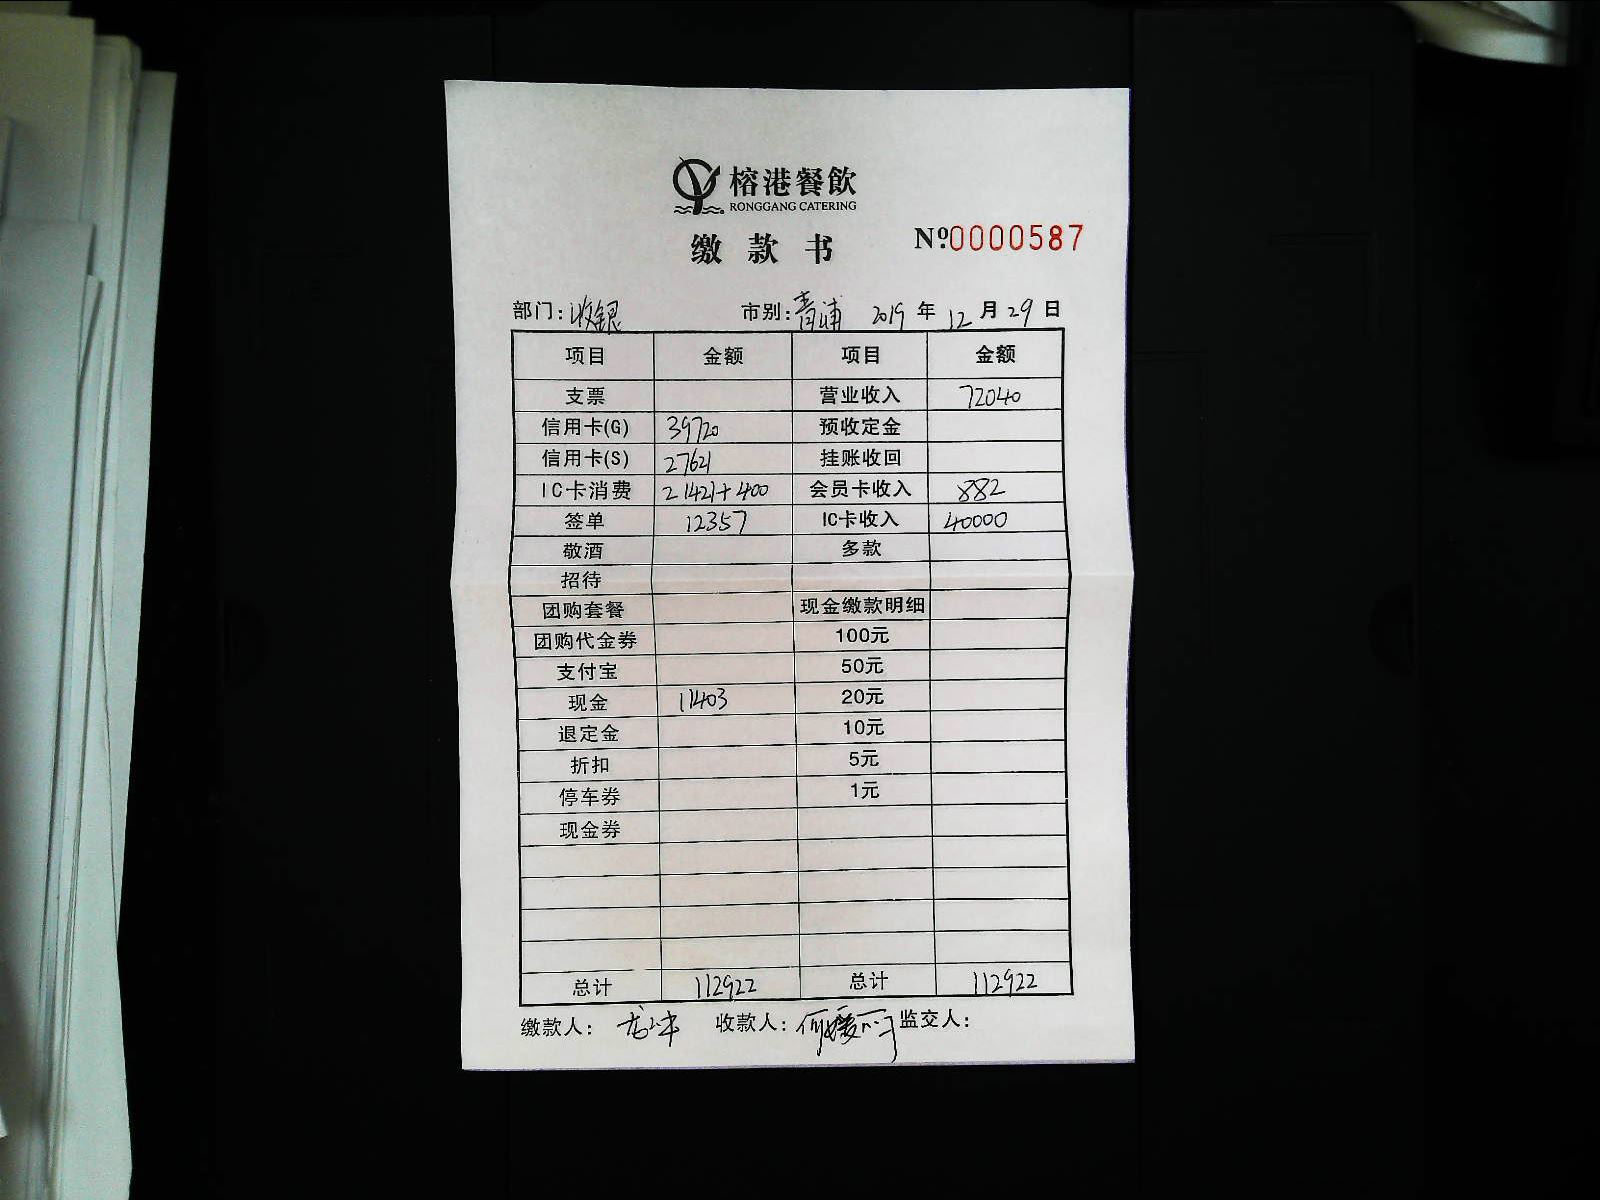 榕港餐飲
RONGGANG CATERING
缴款书 №0000587
部门:收银 市别:青浦 2019年12月29日
项目 金额 项目 金额
支票 营业收入 72040
信用卡(G) 39720 预收定金
信用卡(S) 27621 挂账收回
IC卡消费 21421+400 会员卡收入 882
签单 12357 IC卡收入 40000
敬酒 多款
招待
团购套餐 现金缴款明细
团购代金券 100元
支付宝 50元
现金 11403 20元
退定金 10元
折扣 5元
停车券 1元
现金券
总计 112922 总计 112922
缴款人: 收款人: 监交人: